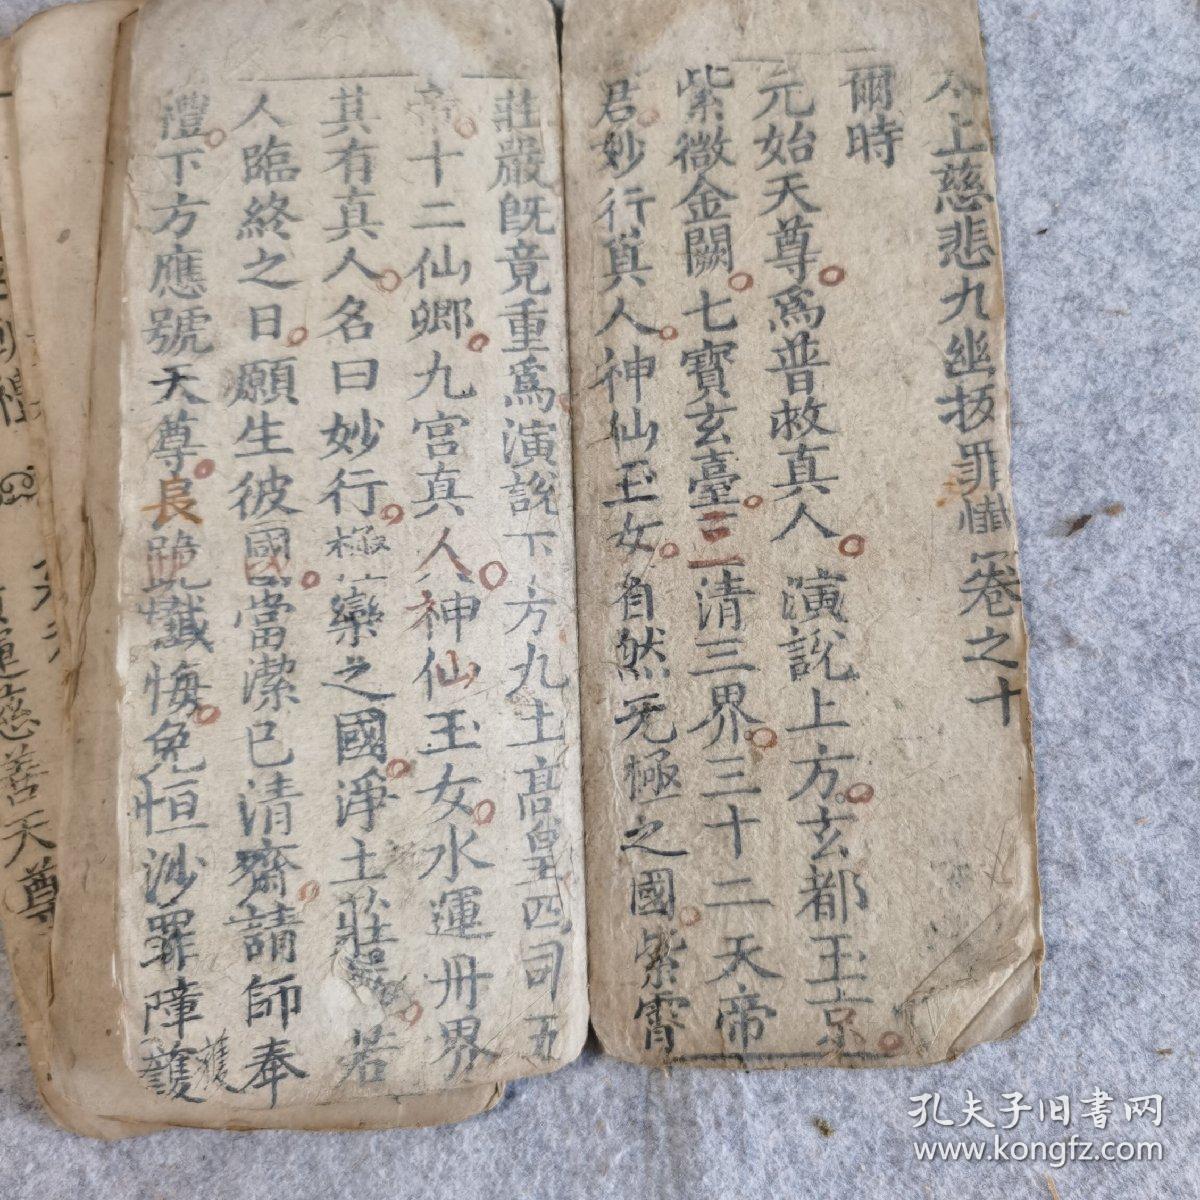 太上慈悲九幽拔罪懺卷之十
爾時
元始天尊為普救真人演說上方玄都玉京
紫微金闕七寶玄臺三清三界三十二天帝
君妙行真人神仙玉女自然无極之國紫霄
莊嚴既竟重為演說下方九土高皇四司五
帝十二仙卿九宮真人神仙玉女水運冊界
其有真人名曰妙行極樂之國淨土莊嚴若
人臨終之日願生彼國當潔己清齋請師奉
禮下方應號天尊長跪懺悔免恒沙罪障護
護
運慈善天尊
孔夫子旧書网
www.kongfz.com